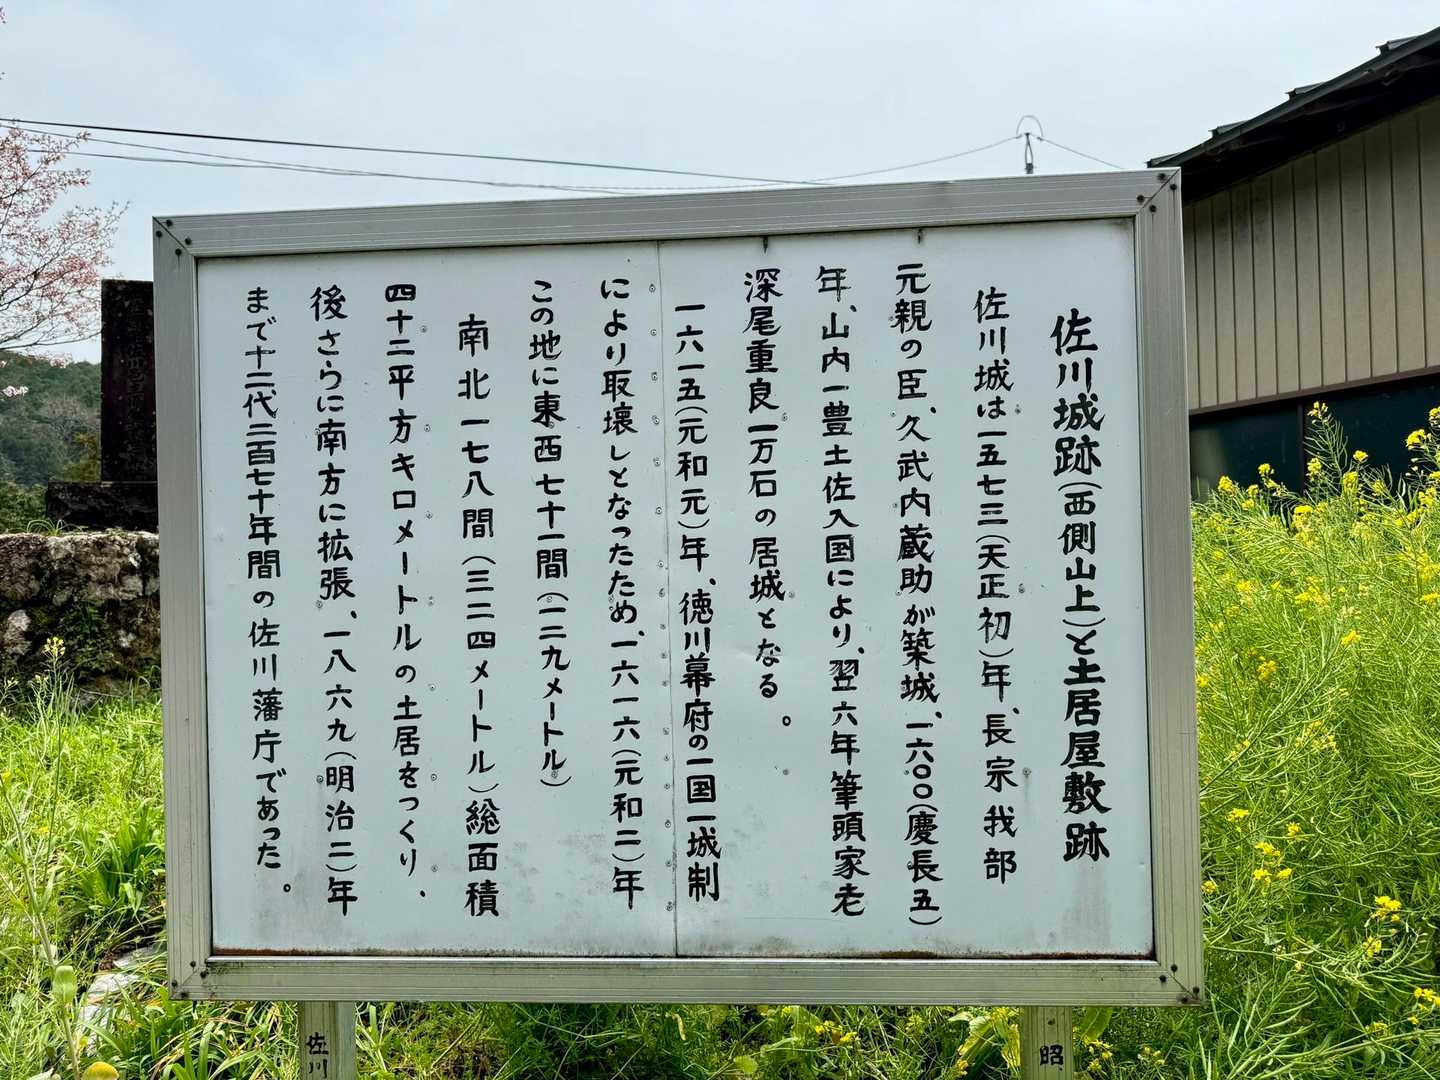 佐川城跡(西側山上)と土居屋敷跡
佐川城は一五七三(天正初)年、長宗我部
元親の臣、久武内蔵助が築城、一六〇〇(慶長五)
年、山内一豊土佐入国により、翌六年筆頭家老
深尾重良一万石の居城となる。
一六一五(元和元)年、徳川幕府の一国一城制
により取壊しとなったため、一六一六(元和二)年
この地に東西七十一間(一二九メートル)
南北一七八間(三二四メートル)総面積
四十二平方キロメートルの土居をつくり、
後さらに南方に拡張、一八六九(明治二)年
まで十二代二百七十年間の佐川藩庁であった。
佐川
昭